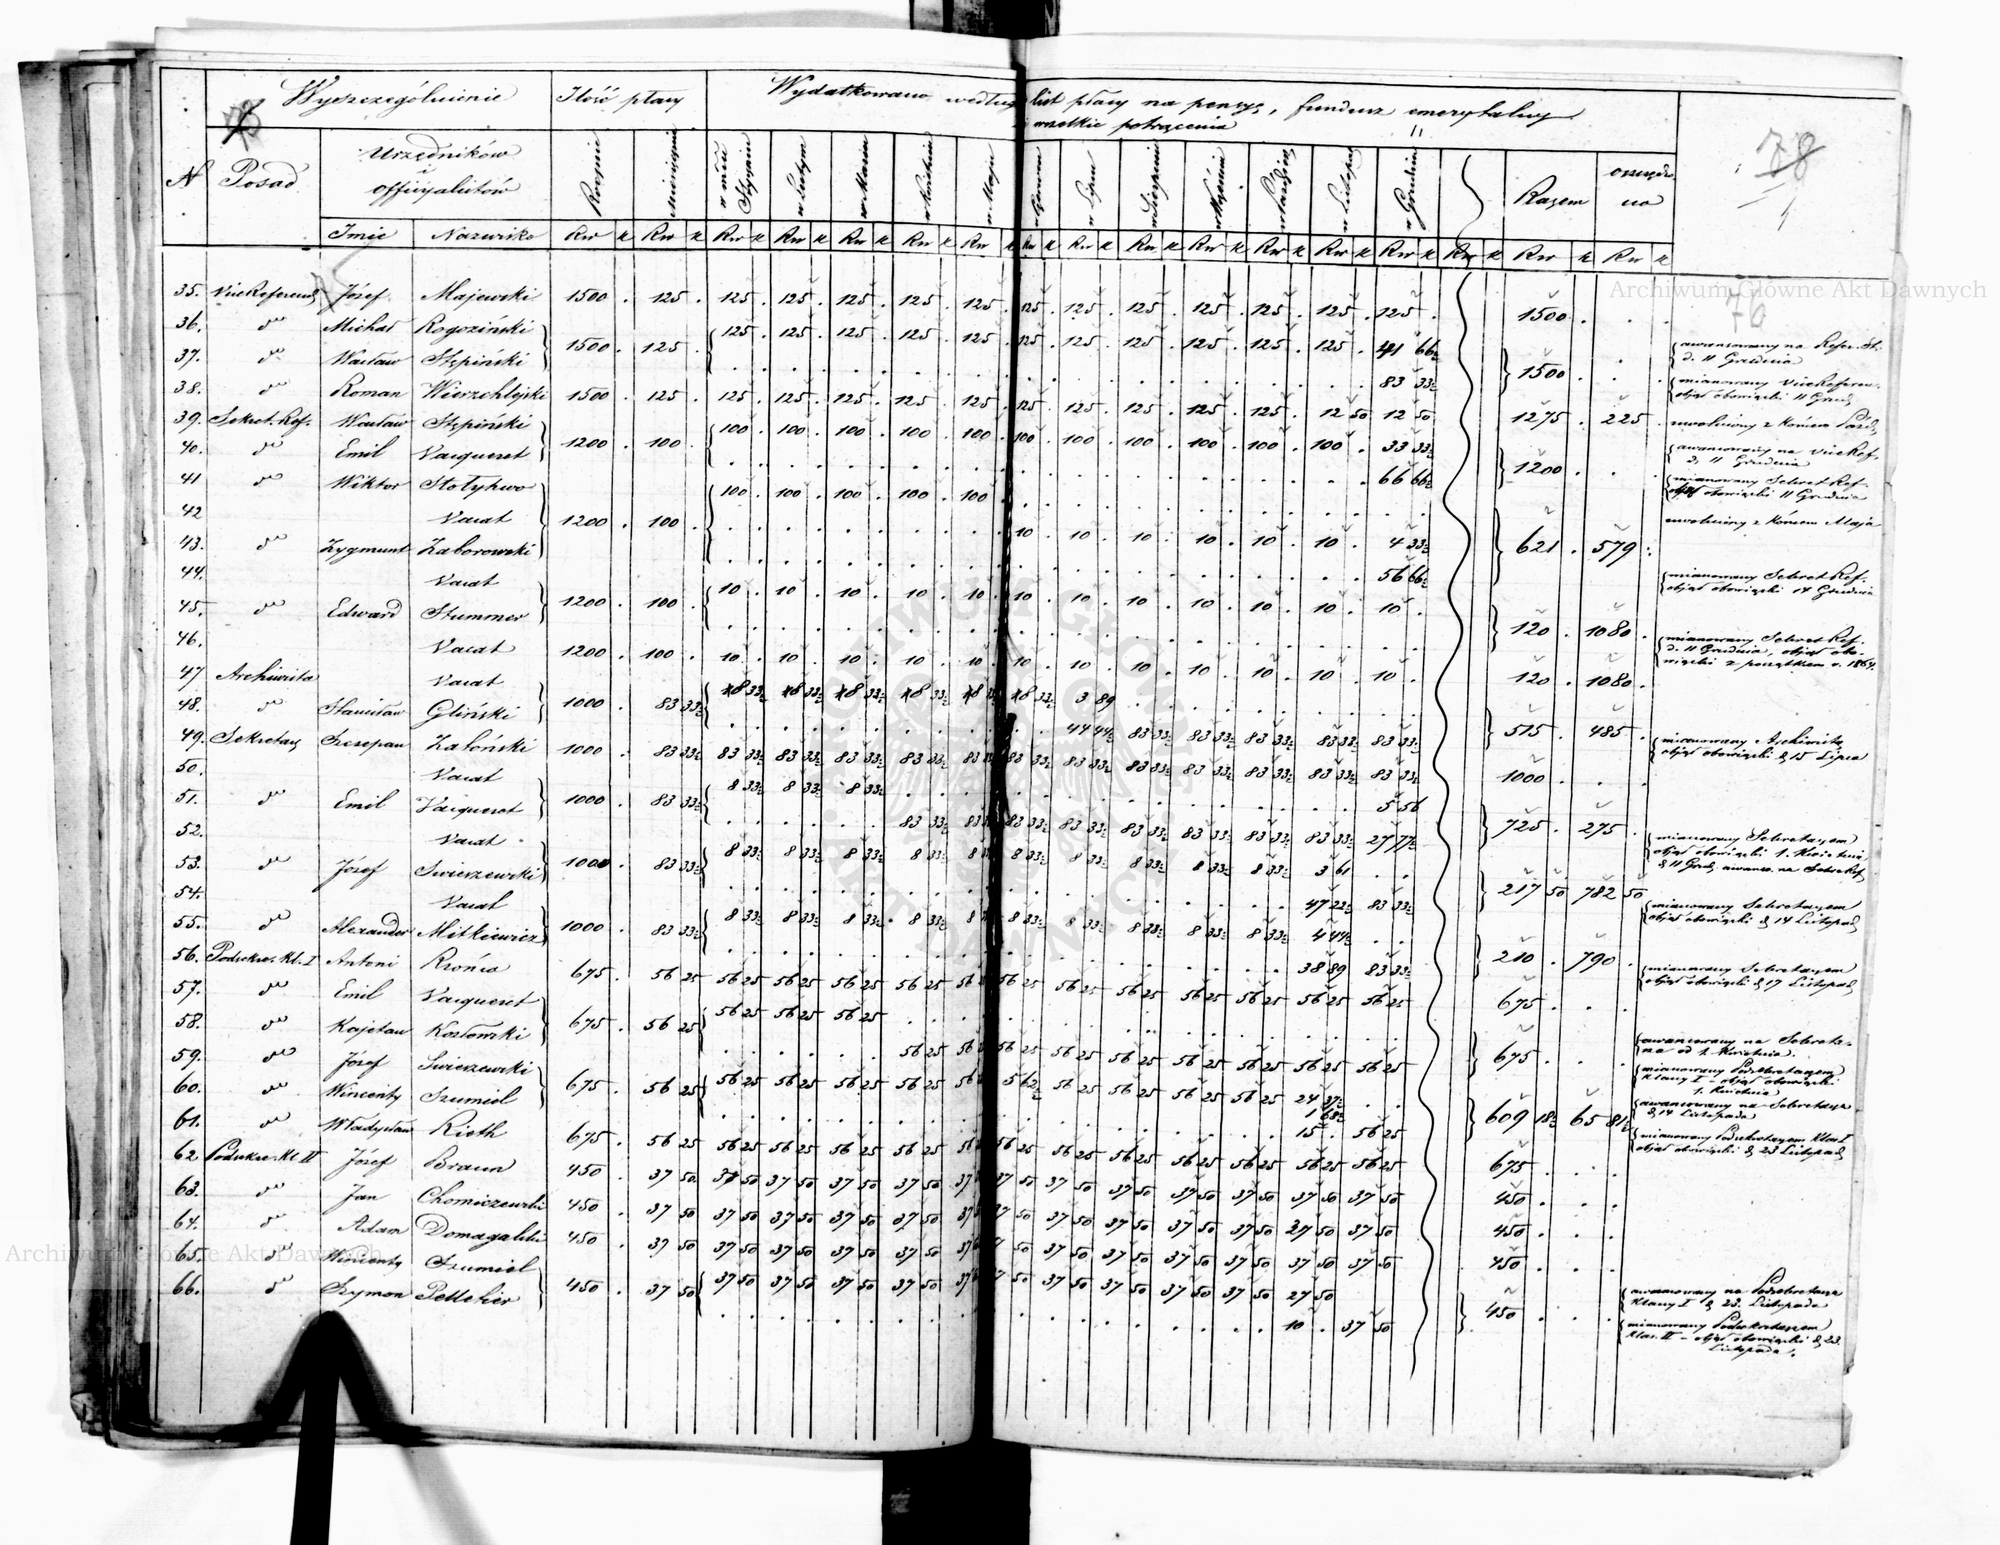 Wyszczególnienie Ilość płacy Wydatkowano według list płacy na pensye, fundusz emerytalny
i wszelkie potrącenia
78
N Posad Urzędników
i
officyalistów Rocznie Miesięcznie w mcu Styczniu w Lutym w Marcu w Kwietniu w Maju w Czerwcu w Lipcu w Sierpniu w Wrześniu w Październ. w Listopad. w Grudniu Razem oszczędzo
no
Imie Nazwisko Rsr k Rsr k Rsr k Rsr k Rsr k Rsr k Rsr k Rsr k Rsr k Rsr k Rsr k Rsr k Rsr k Rsr k Rsr k Rsr k Rsr k
Archiwum Główne Akt Dawnych
76
35. ViceReferend. Józef Majewski 1500 . 125 . 125 . 125 . 125 . 125 . 125 . 125 . 125 . 125 . 125 . 125 . 125 . 125 . 1500 . . .
36. dto Michał Rogoziński 1500 . 125 . 125 . 125 . 125 . 125 . 125 . 125 . 125 . 125 . 125 . 125 . 125 . 41 66½ 1500 . . . awansowany na Refer. St.
d. 11 Grudnia
37. dto Wacław Stępiński . . . . . . . . . . . 83 33½ mianowany ViceReferen.
objął obowiązki 11 Grud.
38. dto Roman Wierzchlejski 1500 . 125 . 125 . 125 . 125 . 125 . 125 . 125 . 125 . 125 . 125 . 125 . 12 50 12 50 1275 . 225 . uwolniony z końcem Paźd.
39. Sekret. Ref. Wacław Stępiński 1200 . 100 . 100 . 100 . 100 . 100 . 100 . 100 . 100 . 100 . 100 . 100 . 100 . 33 33½ 1200 . . . awansowany na ViceRef.
d. 11 Grudnia
40. dto Emil Vacqueret . . . . . . . . . . . 66 66½ mianowany Sekret Ref.
objął obowiązki 11 Grudnia
41 dto Wiktor Stołyhwo 1200 . 100 . 100 . 100 . 100 . 100 . 100 . . . . . . . . 621 . 579 . uwolniony z końcem Maja
42 Vacat . . . . . 10 . 10 . 10 . 10 . 10 . 10 . 4 33½
43. dto Zygmunt Zaborowski . . . . . . . . . . . 56 66½ mianowany Sekret Ref.
objął obowiązki 14 Grudnia
44. Vacat 1200 . 100 . 10 . 10 . 10 . 10 . 10 . 10 . 10 . 10 . 10 . 10 . 10 . 10 . 120 . 1080 .
45. dto Edward Stummer . . . . . . . . . . . . mianowany Sekret Ref.
d. 11 Grudnia, objął obo-
wiązki z początkiem r. 1867.
46. Vacat 1200 . 100 . 10 . 10 . 10 . 10 . 10 . 10 . 10 . 10 . 10 . 10 . 10 . 10 . 120 . 1080 .
47 Archiwista Vacat 1000 . 83 33½ 8 33½ 8 33½ 8 33½ 8 33½ 8 33½ 8 33½ 3 89 . . . . . 515 . 485 .
48. dto Stanisław Gliński . . . . . . 44 44½ 83 33½ 83 33½ 83 33½ 83 33½ 83 33½ mianowany Archiwistą
objął obowiązki d. 15 Lipca
49. Sekretarz Szczepan Zaboński 1000 . 83 33½ 83 33½ 83 33½ 83 33½ 83 33½ 83 33½ 83 33½ 83 33½ 83 33½ 83 33½ 83 33½ 83 33½ 83 33½ 1000 . . .
50. Vacat 1000 . 83 33½ 8 33½ 8 33½ 8 33½ . . . . . . . . 5 56 725 . 275 .
51. dto Emil Vacqueret . . . 83 33½ 83 33½ 83 33½ 83 33½ 83 33½ 83 33½ 83 33½ 83 33½ 27 77½ mianowany Sekretarzem
objął obowiązki 1. Kwietnia
d. 11 Grud. awans. na Sekr. Ref.
52. Vacat 1000 . 83 33½ 8 33½ 8 33½ 8 33½ 8 33½ 8 33½ 8 33½ 8 33½ 8 33½ 8 33½ 8 33½ 3 61 . . 217 50 782 50
53. dto Józef Świerzewski . . . . . . . . . . 47 22½ 83 33½ mianowany Sekretarzem
objął obowiązki d. 14 Listopad.
54. Vacat 1000 . 83 33½ 8 33½ 8 33½ 8 33½ 8 33½ 8 33½ 8 33½ 8 33½ 8 33½ 8 33½ 8 33½ 4 44½ . . 210 . 790 .
55. dto Alexander Mitkiewicz . . . . . . . . . . 38 89 83 33½ mianowany Sekretarzem
objął obowiązki d. 17 Listopad.
56. Podsekre. Kl. I Antoni Krońca 675 . 56 25 56 25 56 25 56 25 56 25 56 25 56 25 56 25 56 25 56 25 56 25 56 25 56 25 675 . . .
57. dto Emil Vacqueret 675 . 56 25 56 25 56 25 56 25 . . . . . . . . . 675 . . . awansowany na Sekreta-
rza od 1. Kwietnia.
58. dto Kajetan Kozłowski . . . 56 25 56 25 56 25 56 25 56 25 56 25 56 25 56 25 56 25 mianowany Podsekretarzem
Klassy I – objął obowiązki
1. Kwietnia
59. dto Józef Świerzewski 675 . 56 25 56 25 56 25 56 25 56 25 56 25 5 62½ 56 25 56 25 56 25 56 25 24 37½ . . 609 18½ 65 81½ awansowany na Sekretarza
d. 14 Listopada
1 68½
60. dto Wincenty Szumiel . . . . . . . . . . 15 . 56 25 mianowany Podsekretarzem Klas I
objął obowiązki d. 23 Listopad.
61. dto Władysław Rieth 675 . 56 25 56 25 56 25 56 25 56 25 56 25 56 25 56 25 56 25 56 25 56 25 56 25 56 25 675 . . .
62 Podsekre. Kl. II Józef Braun 450 . 37 50 37 50 37 50 37 50 37 50 37 50 37 50 37 50 37 50 37 50 37 50 37 50 37 50 450 . . .
63. dto Jan Chomiczewski 450 . 37 50 37 50 37 50 37 50 37 50 37 50 37 50 37 50 37 50 37 50 37 50 37 50 37 50 450 . . .
64. dto Adam Domagalski 450 . 37 50 37 50 37 50 37 50 37 50 37 50 37 50 37 50 37 50 37 50 37 50 37 50 37 50 450 . . .
Archiwum Główne Akt Dawnych
65. dto Wincenty Szumiel 450 . 37 50 37 50 37 50 37 50 37 50 37 50 37 50 37 50 37 50 37 50 37 50 27 50 450 . . . awansowany na Podsekretarza
Klassy I d. 23. Listopada
66. dto Szymon Pelletier . . . . . . . . . . 10 . 37 50 mianowany Podsekretarzem
Klas. II – objął obowiązki d. 23.
Listopada.